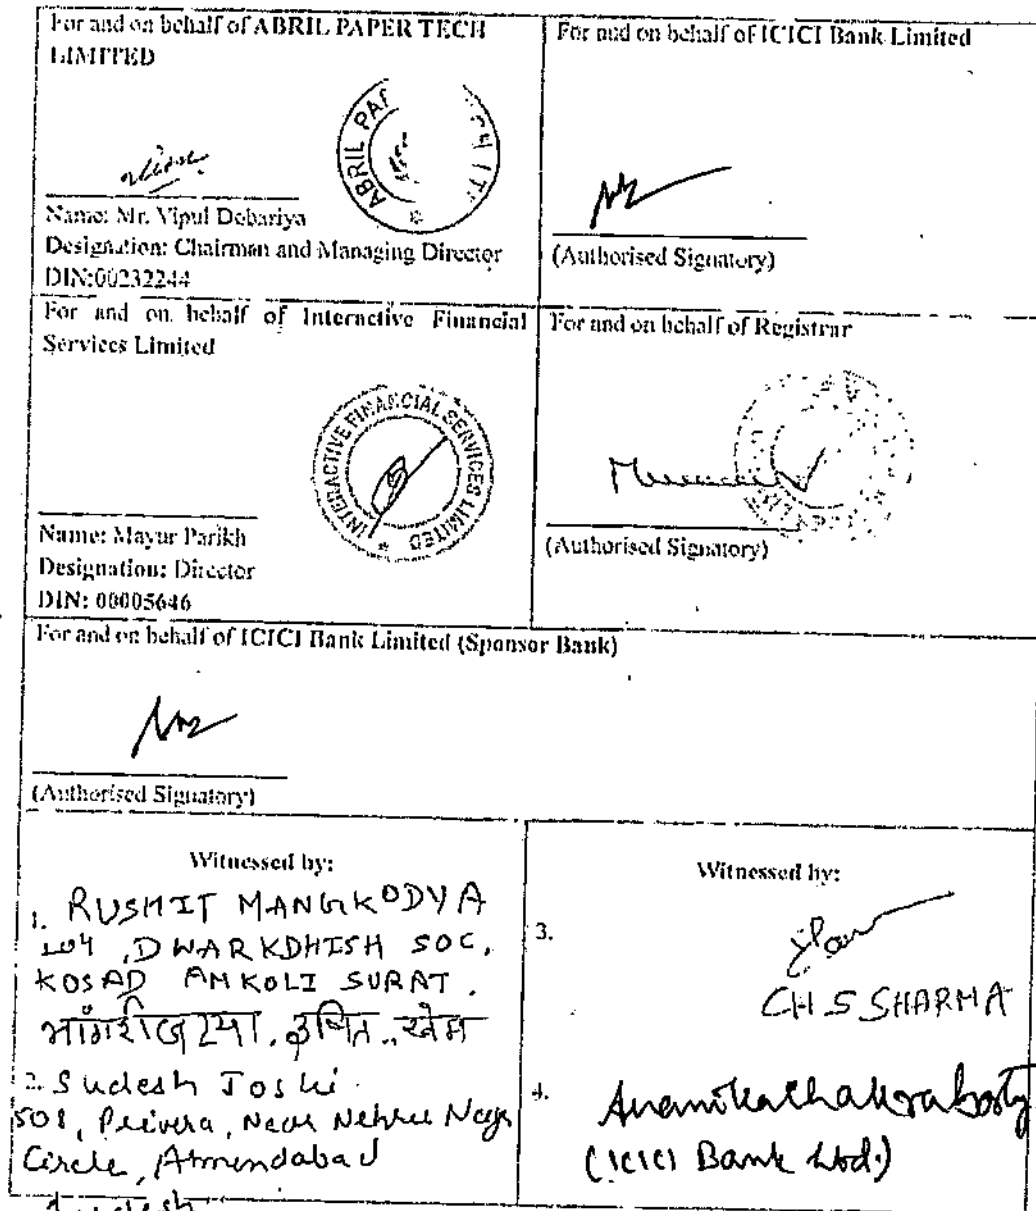 For and on behalf of ABRIL PAPER TECH
LIMITED
ABRIL PAP
Name: Mr. Vipul Dobariya
Designation: Chairman and Managing Director
DIN:00232244
For and on behalf of ICICI Bank Limited
(Authorised Signatory)
For and on behalf of Interactive Financial
Services Limited
INTERACTIVE FINANCIAL SERVICES LIMITED
Name: Mayur Parikh
Designation: Director
DIN: 00005646
For and on behalf of Registrar
(Authorised Signatory)
For and on behalf of ICICI Bank Limited (Sponsor Bank)
(Authorised Signatory)
Witnessed by:
1. RUSHIT MANGKODYA
104, DWARKDHISH SOC,
KOSAD AMKOLI SURAT.
2. Sudesh Joshi
501, Near Nehru Nagr
Circle, Ahmendabad
Witnessed by:
3.
CH S SHARMA
4. Anamika Chakraborty
(ICICI Bank Ltd.)